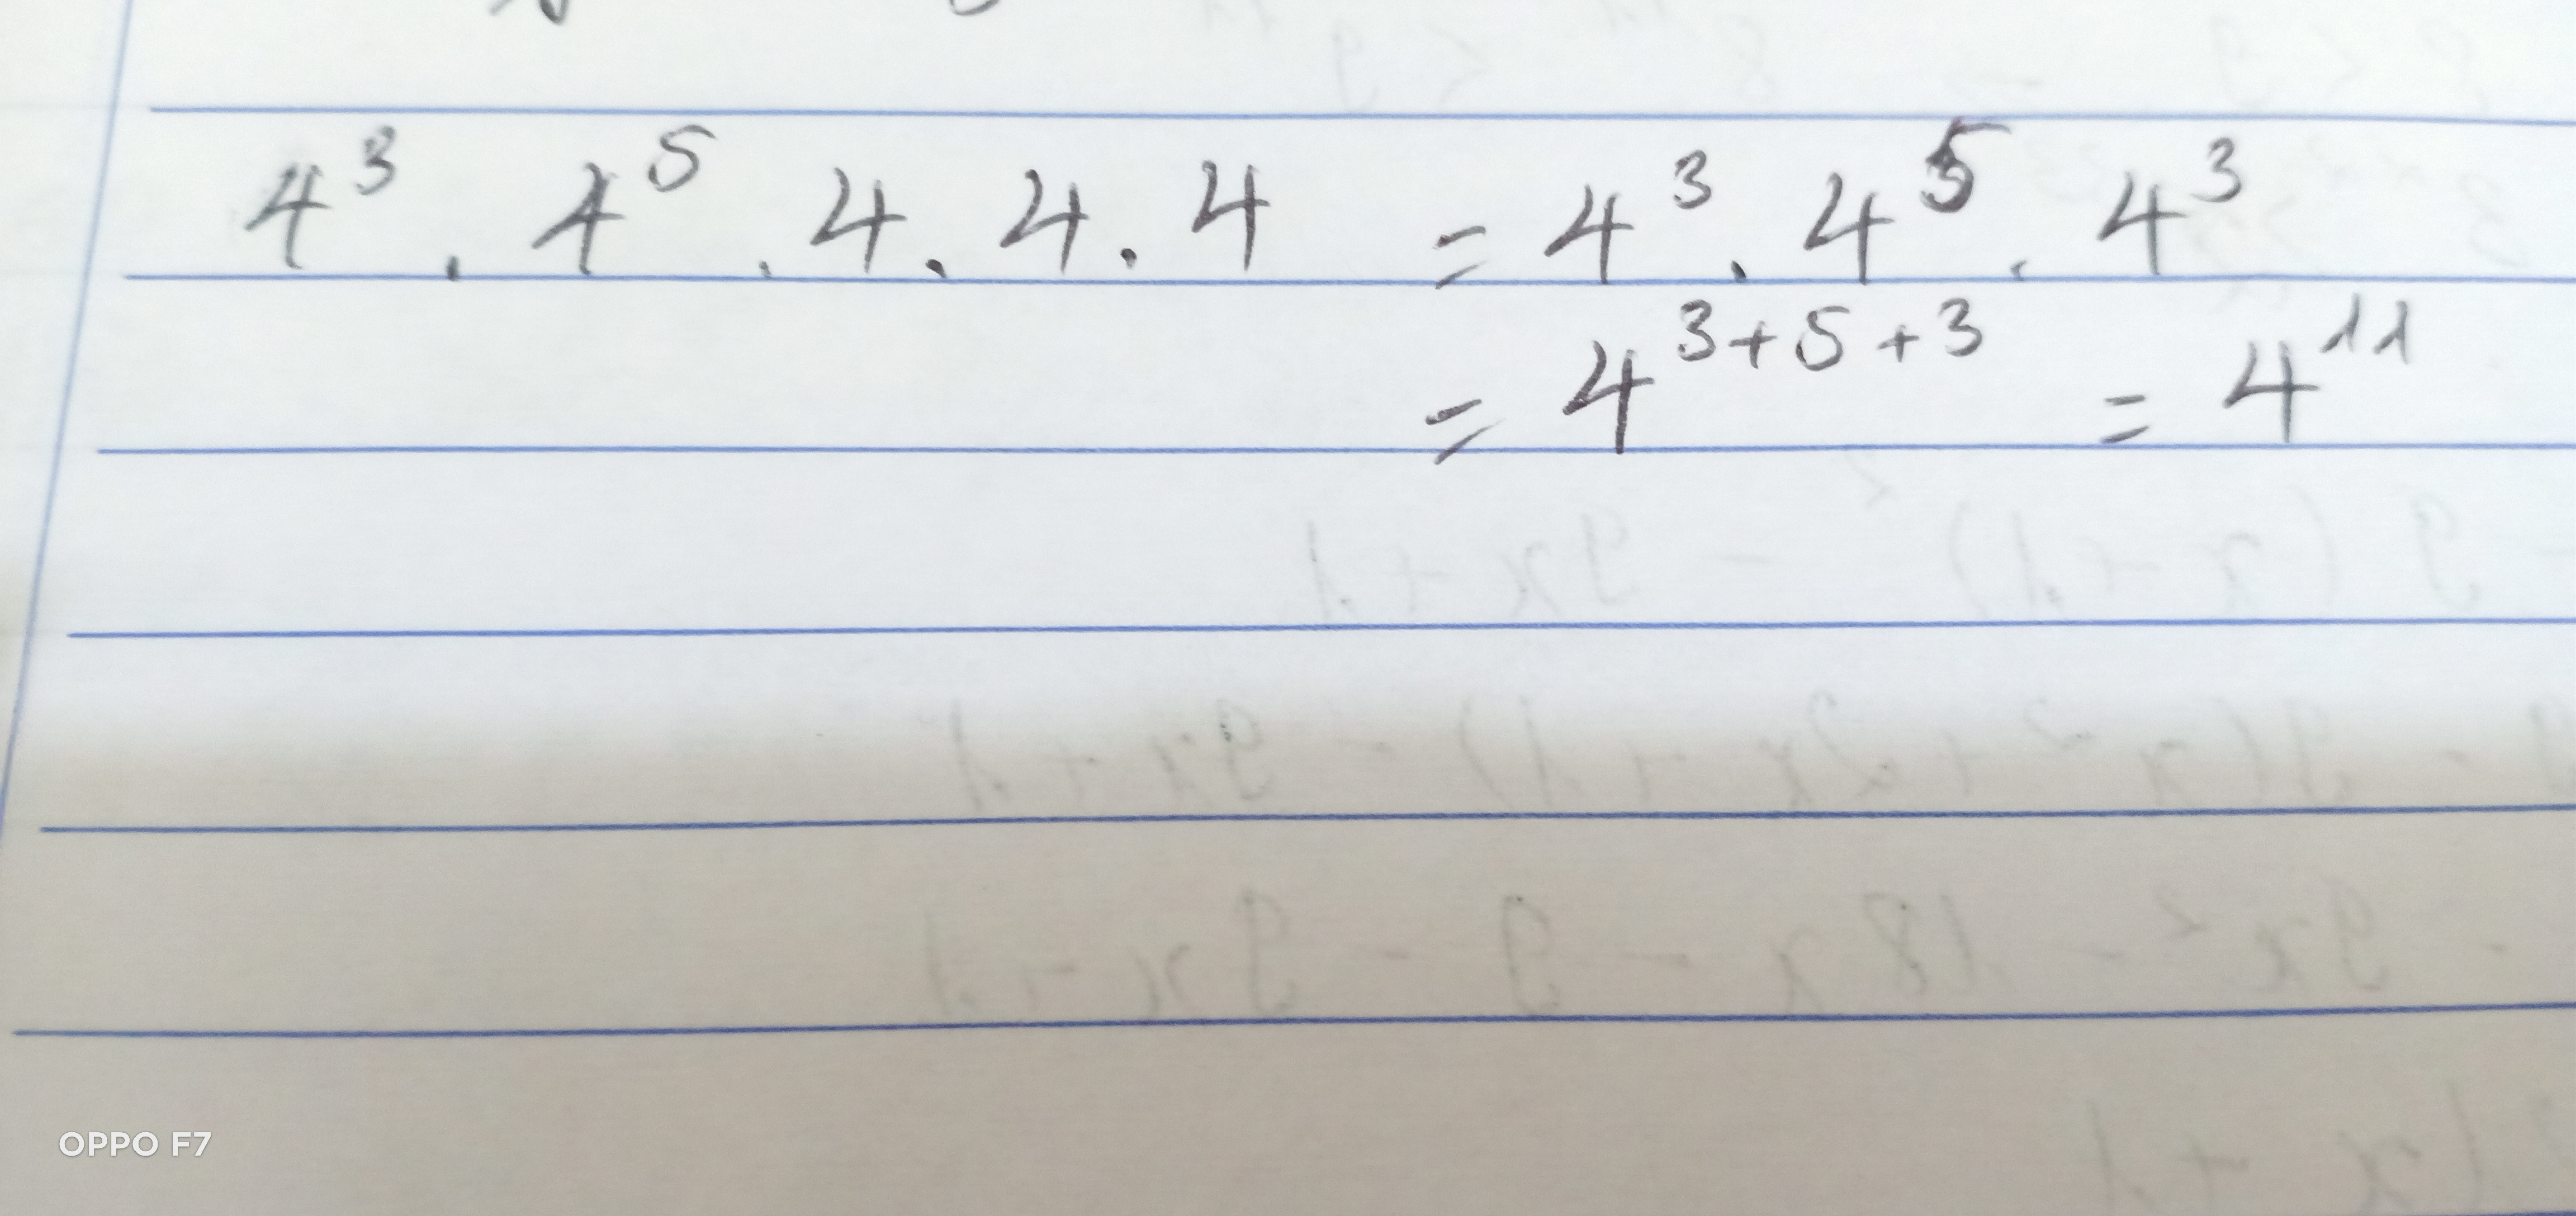 4³ . 4⁵ . 4 . 4 . 4 = 4³ . 4⁵ . 4³
= 4³⁺⁵⁺³ = 4¹¹
OPPO F7